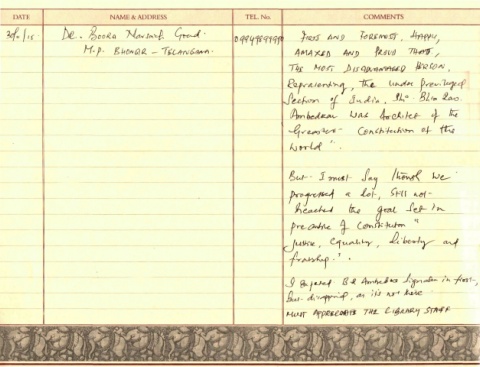 DATE NAME & ADDRESS TEL. No. COMMENTS
Dr. Boora Narsaiah Goud
M.P. BHONGIR – TELANGANA.
FIRST AND FOREMOST, HAPPY,
AMAZED AND PROUD THAT,
THE MOST DISADVANTAGED PERSON,
Representing, the under privileged
Section of India, Sh. Bhim Rao
Ambedkar was Architect of the
Greatest Constitution of the
World".
But I must say though we
progressed a lot, still not
reached the goal set in
preamble of Constitution "
Justice, equality, liberty and
I Ambedkar Signature in first
but as it's not here
MUST APPRECIATE THE LIBRARY STAFF